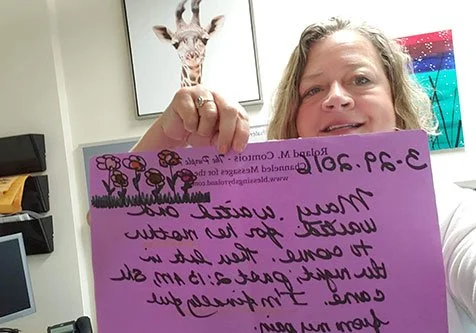 Roland M. Comtois - The Purple
Channeled Messages for the
www.blessingsbyroland.com
3-29.2016
Mary waited and
waited for her mother
to come. Then late in
the night, past 2:15 AM, She
came. I'm finally free
from my pain.